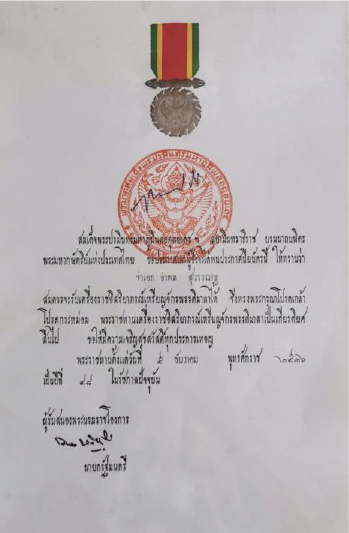 สมเด็จพระปรมินทรมหาภูมิพลอดุลยเดช สยามินทราธิราช บรมนาถบพิตร
พระมหากษัตริย์แห่งประเทศไทย ขอประกาศแก่ผู้ที่ได้พบประกาศนียบัตรนี้ ให้ทราบว่า
จ่าเอก อำพล สุวรรณกูฏ
สมควรจะรับเครื่องราชอิสริยาภรณ์เหรียญจักรพรรดิมาลาได้ จึงทรงพระกรุณาโปรดเกล้า
โปรดกระหม่อม พระราชทานเครื่องราชอิสริยาภรณ์เหรียญจักรพรรดิมาลาเป็นเกียรติยศ
สืบไป ขอให้มีความเจริญสุขสวัสดิ์ทุกประการเทอญ
พระราชทานตั้งแต่วันที่ ๕ ธันวาคม พุทธศักราช ๒๕๓๖
เป็นปีที่ ๔๘ ในรัชกาลปัจจุบัน
ผู้รับสนองพระบรมราชโองการ
นายกรัฐมนตรี